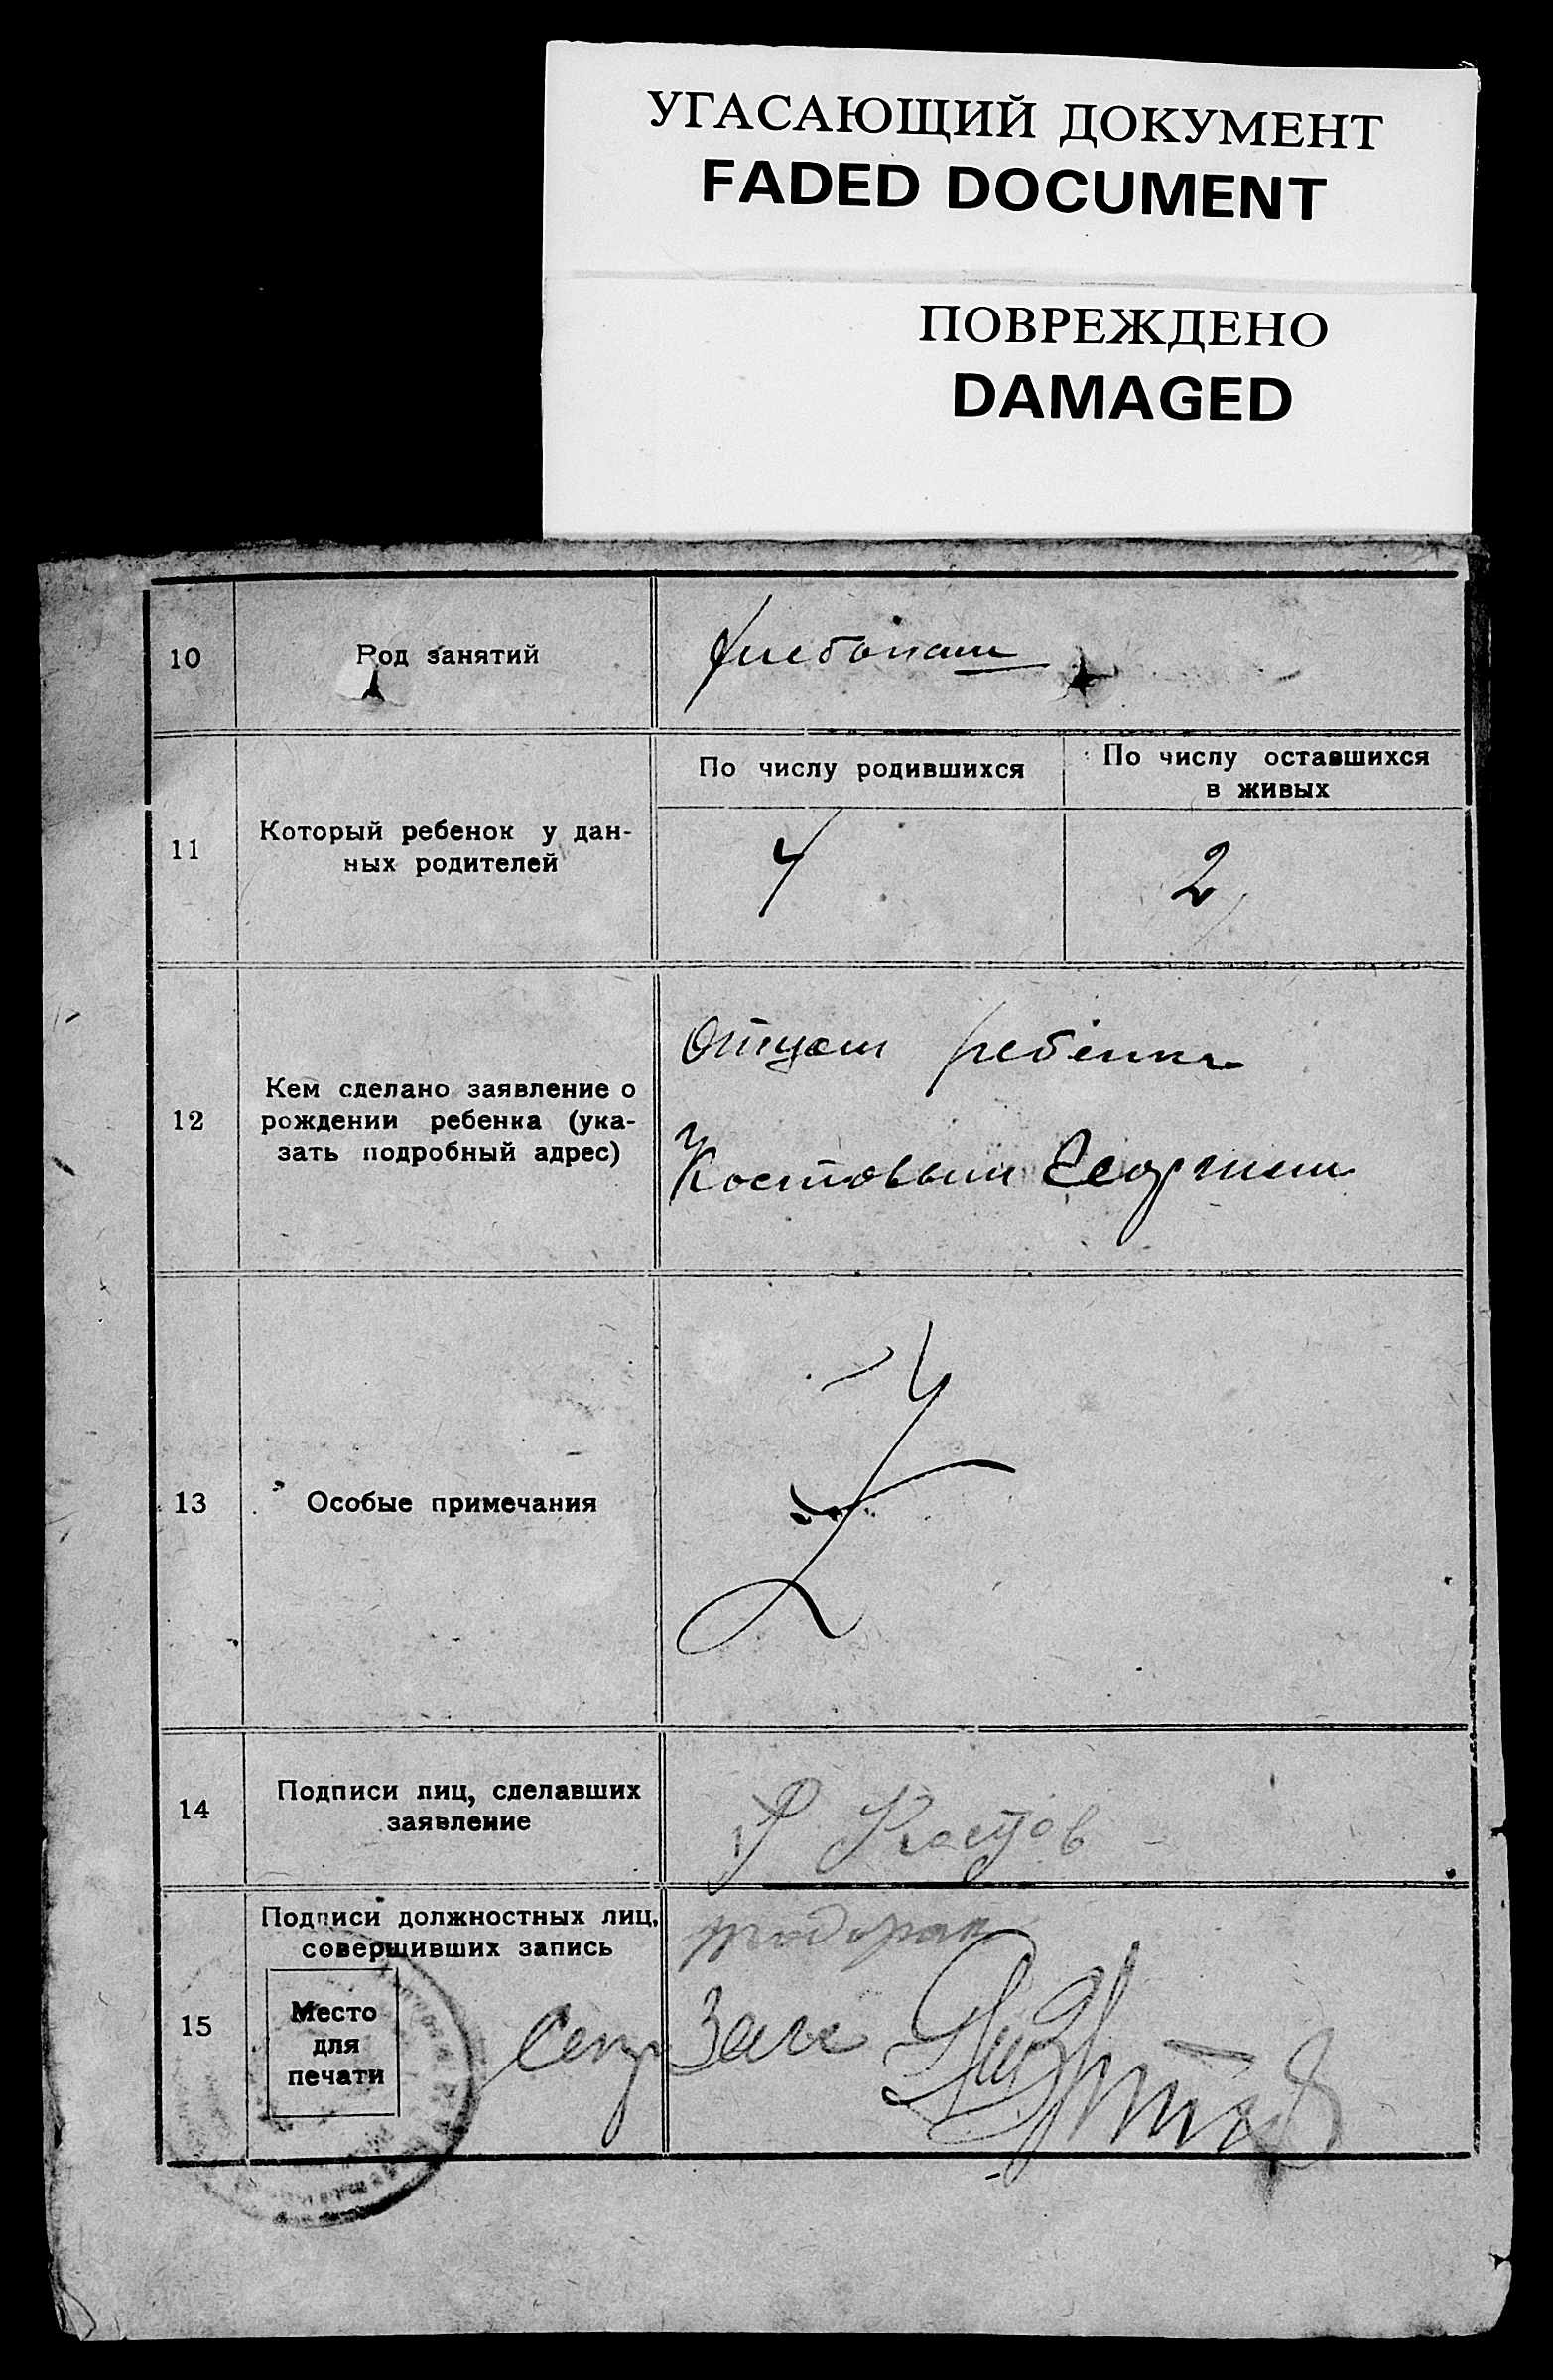 УГАСАЮЩИЙ ДОКУМЕНТ
FADED DOCUMENT
ПОВРЕЖДЕНО
DAMAGED
10
Род занятий
Хлебопаш
11
Который ребенок у дан-
ных родителей
По числу родившихся
По числу оставшихся
в живых
4
2
12
Кем сделано заявление о
рождении ребенка (ука-
зать подробный адрес)
Отцом ребенка
Костовым Георгием
13
Особые примечания
14
Подписи лиц, сделавших
заявление
Костов
15
Подписи должностных лиц,
совершивших запись
Место
для
печати
Секр Загс